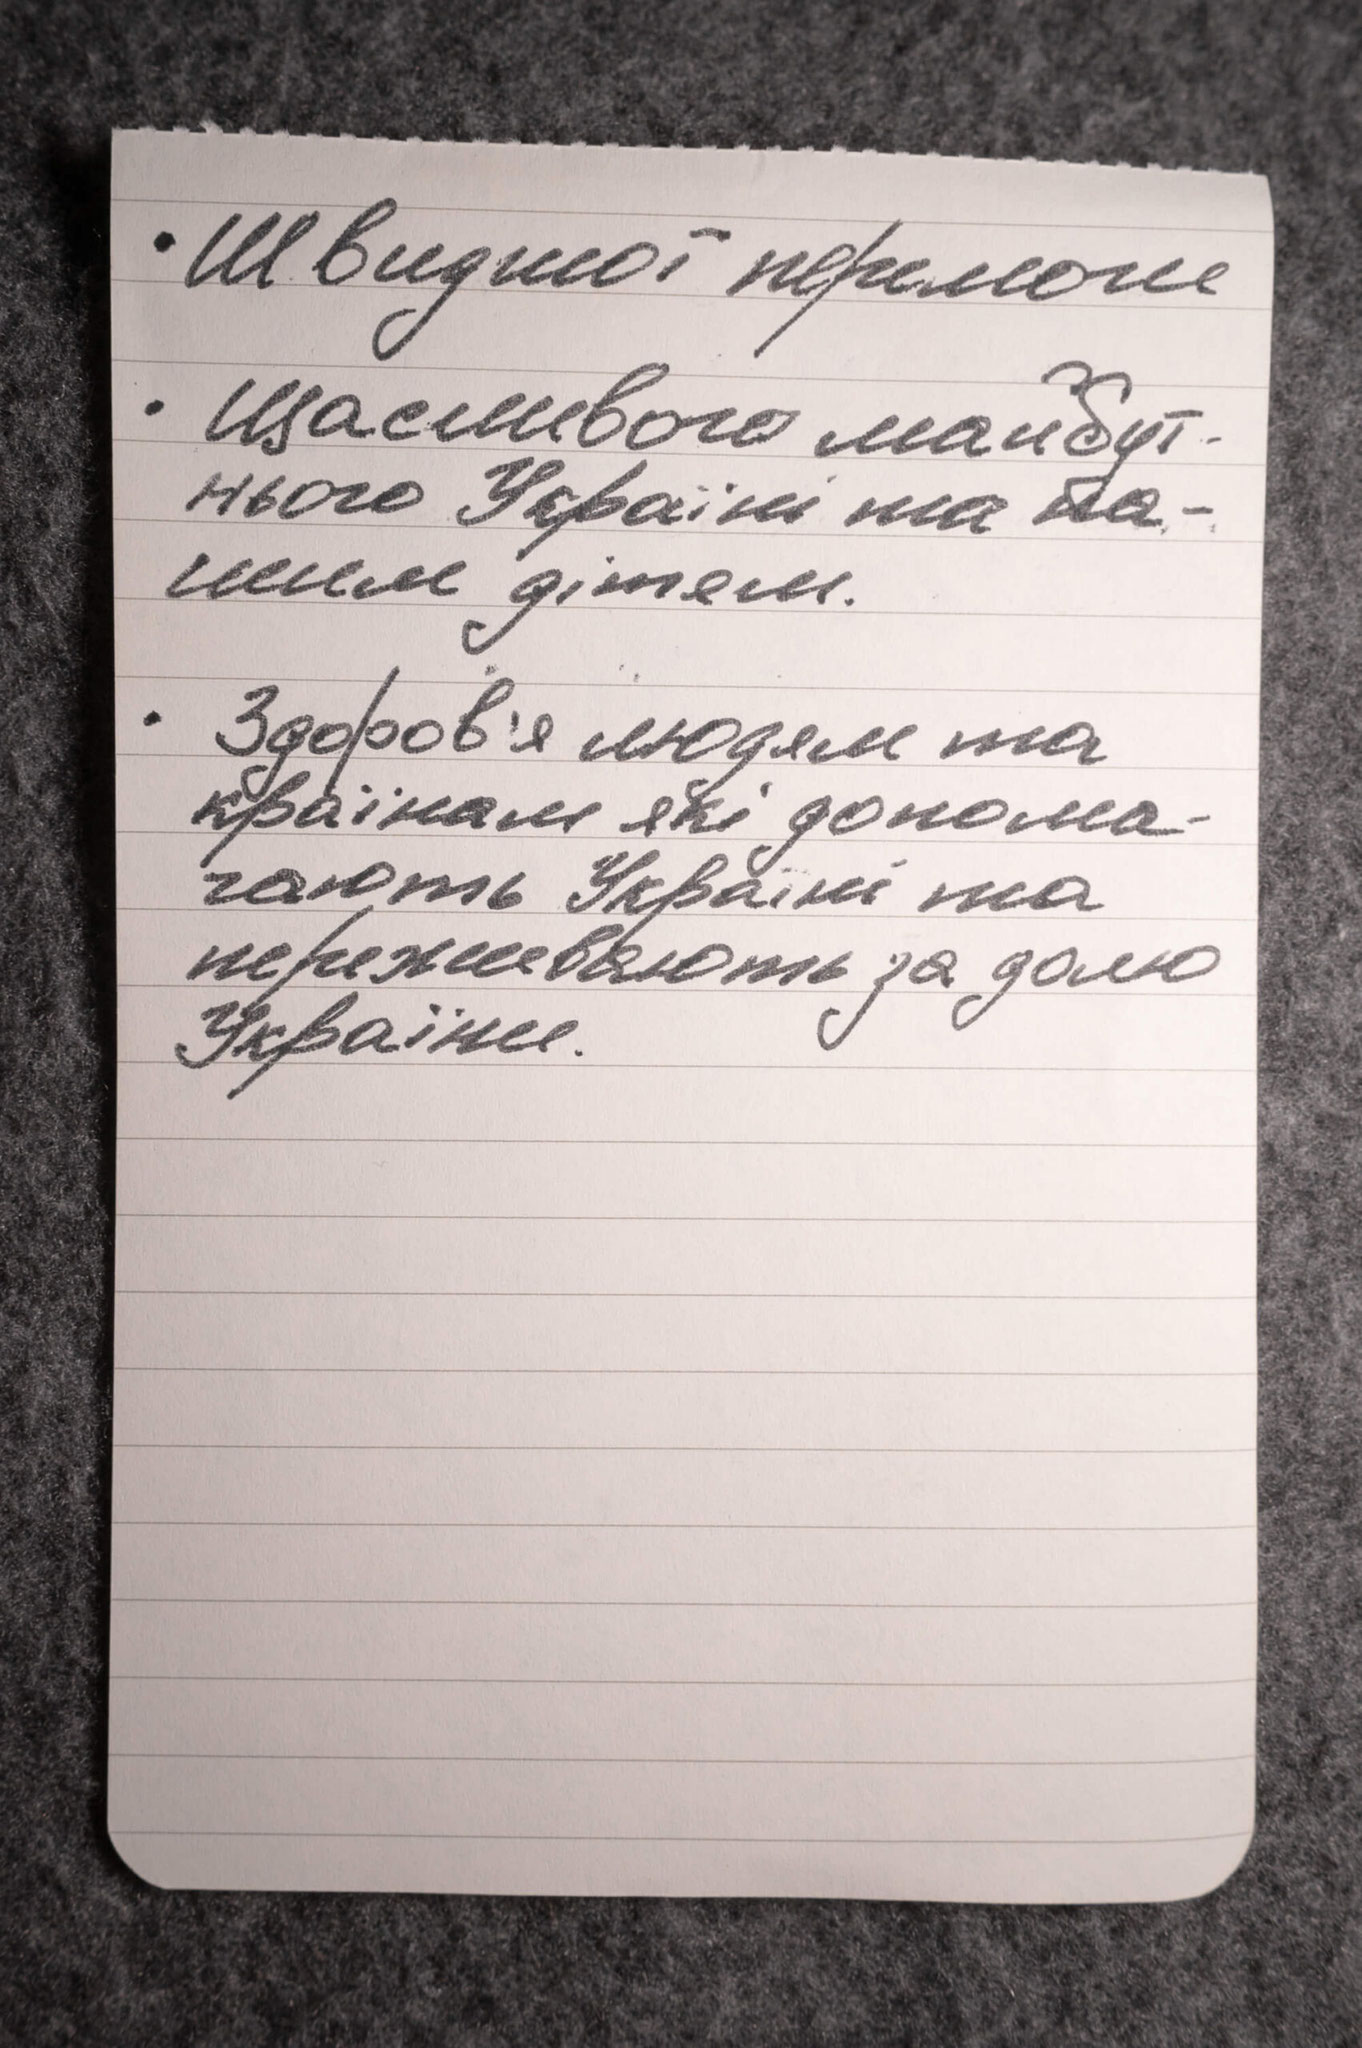 · Швидшої перемоги
· Щасливого майбут-
нього Україні та на-
шим дітям.
· Здоров'я людям та
країнам які допома-
гають Україні та
переживають за долю
України.